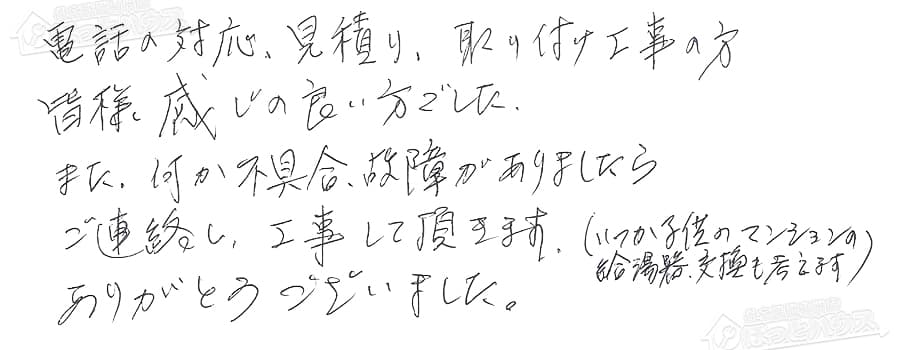 電話の対応、見積り、取り付け工事の方
皆様、感じの良い方でした。
また、何か不具合、故障がありましたら
ご連絡し、工事して頂きます。(いつか子供のマンションの
給湯器、交換も考えます)
ありがとうございました。
ほっとハウス